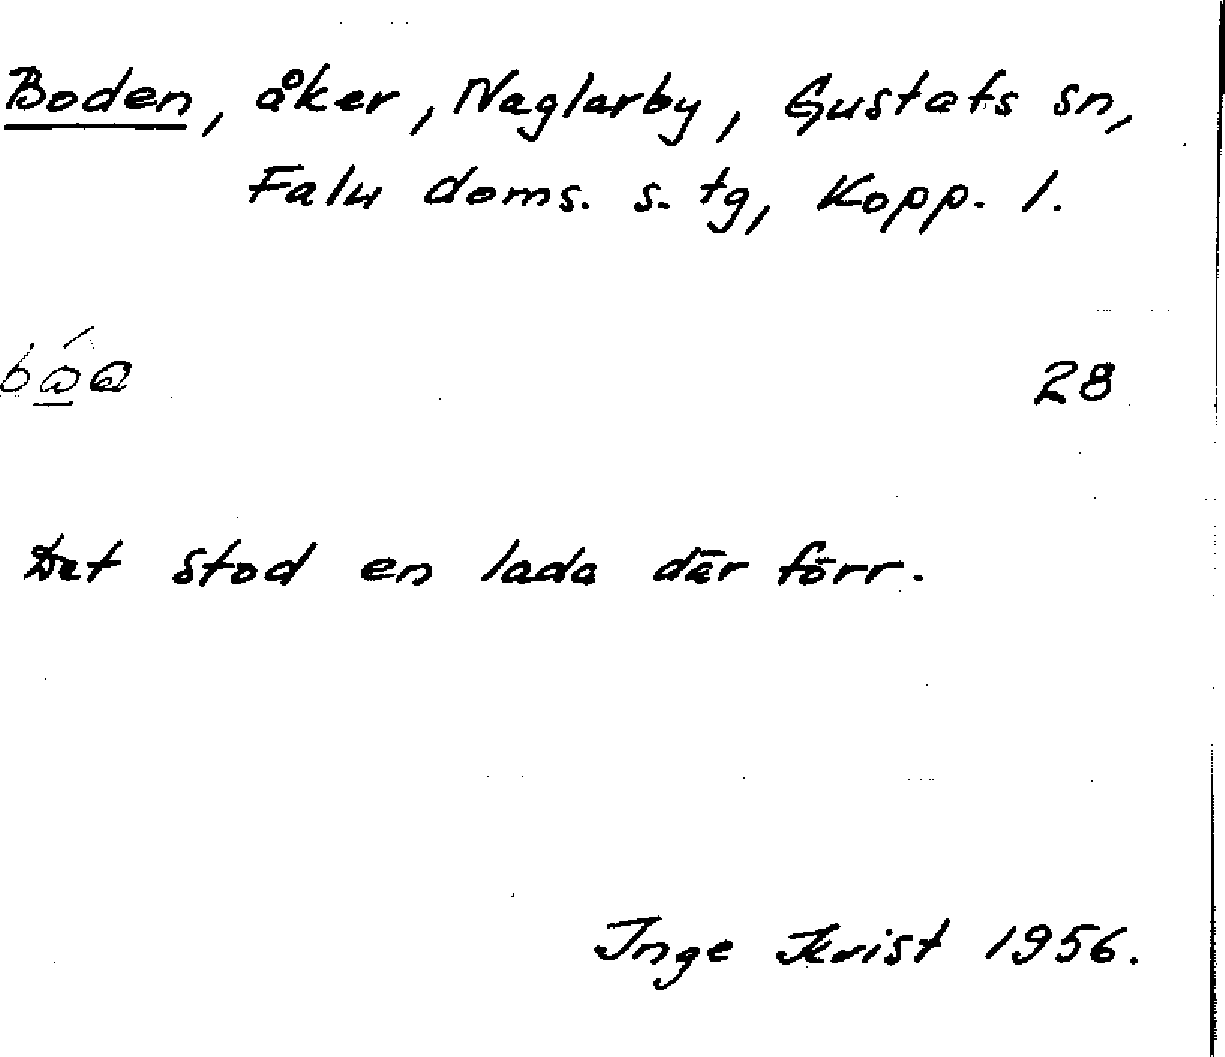 Boden, åker, Naglarby, Gustafs sn,
Falu doms. s. tg, Kopp. l.
28
Det stod en lada där förr.
Inge Kvist 1956.